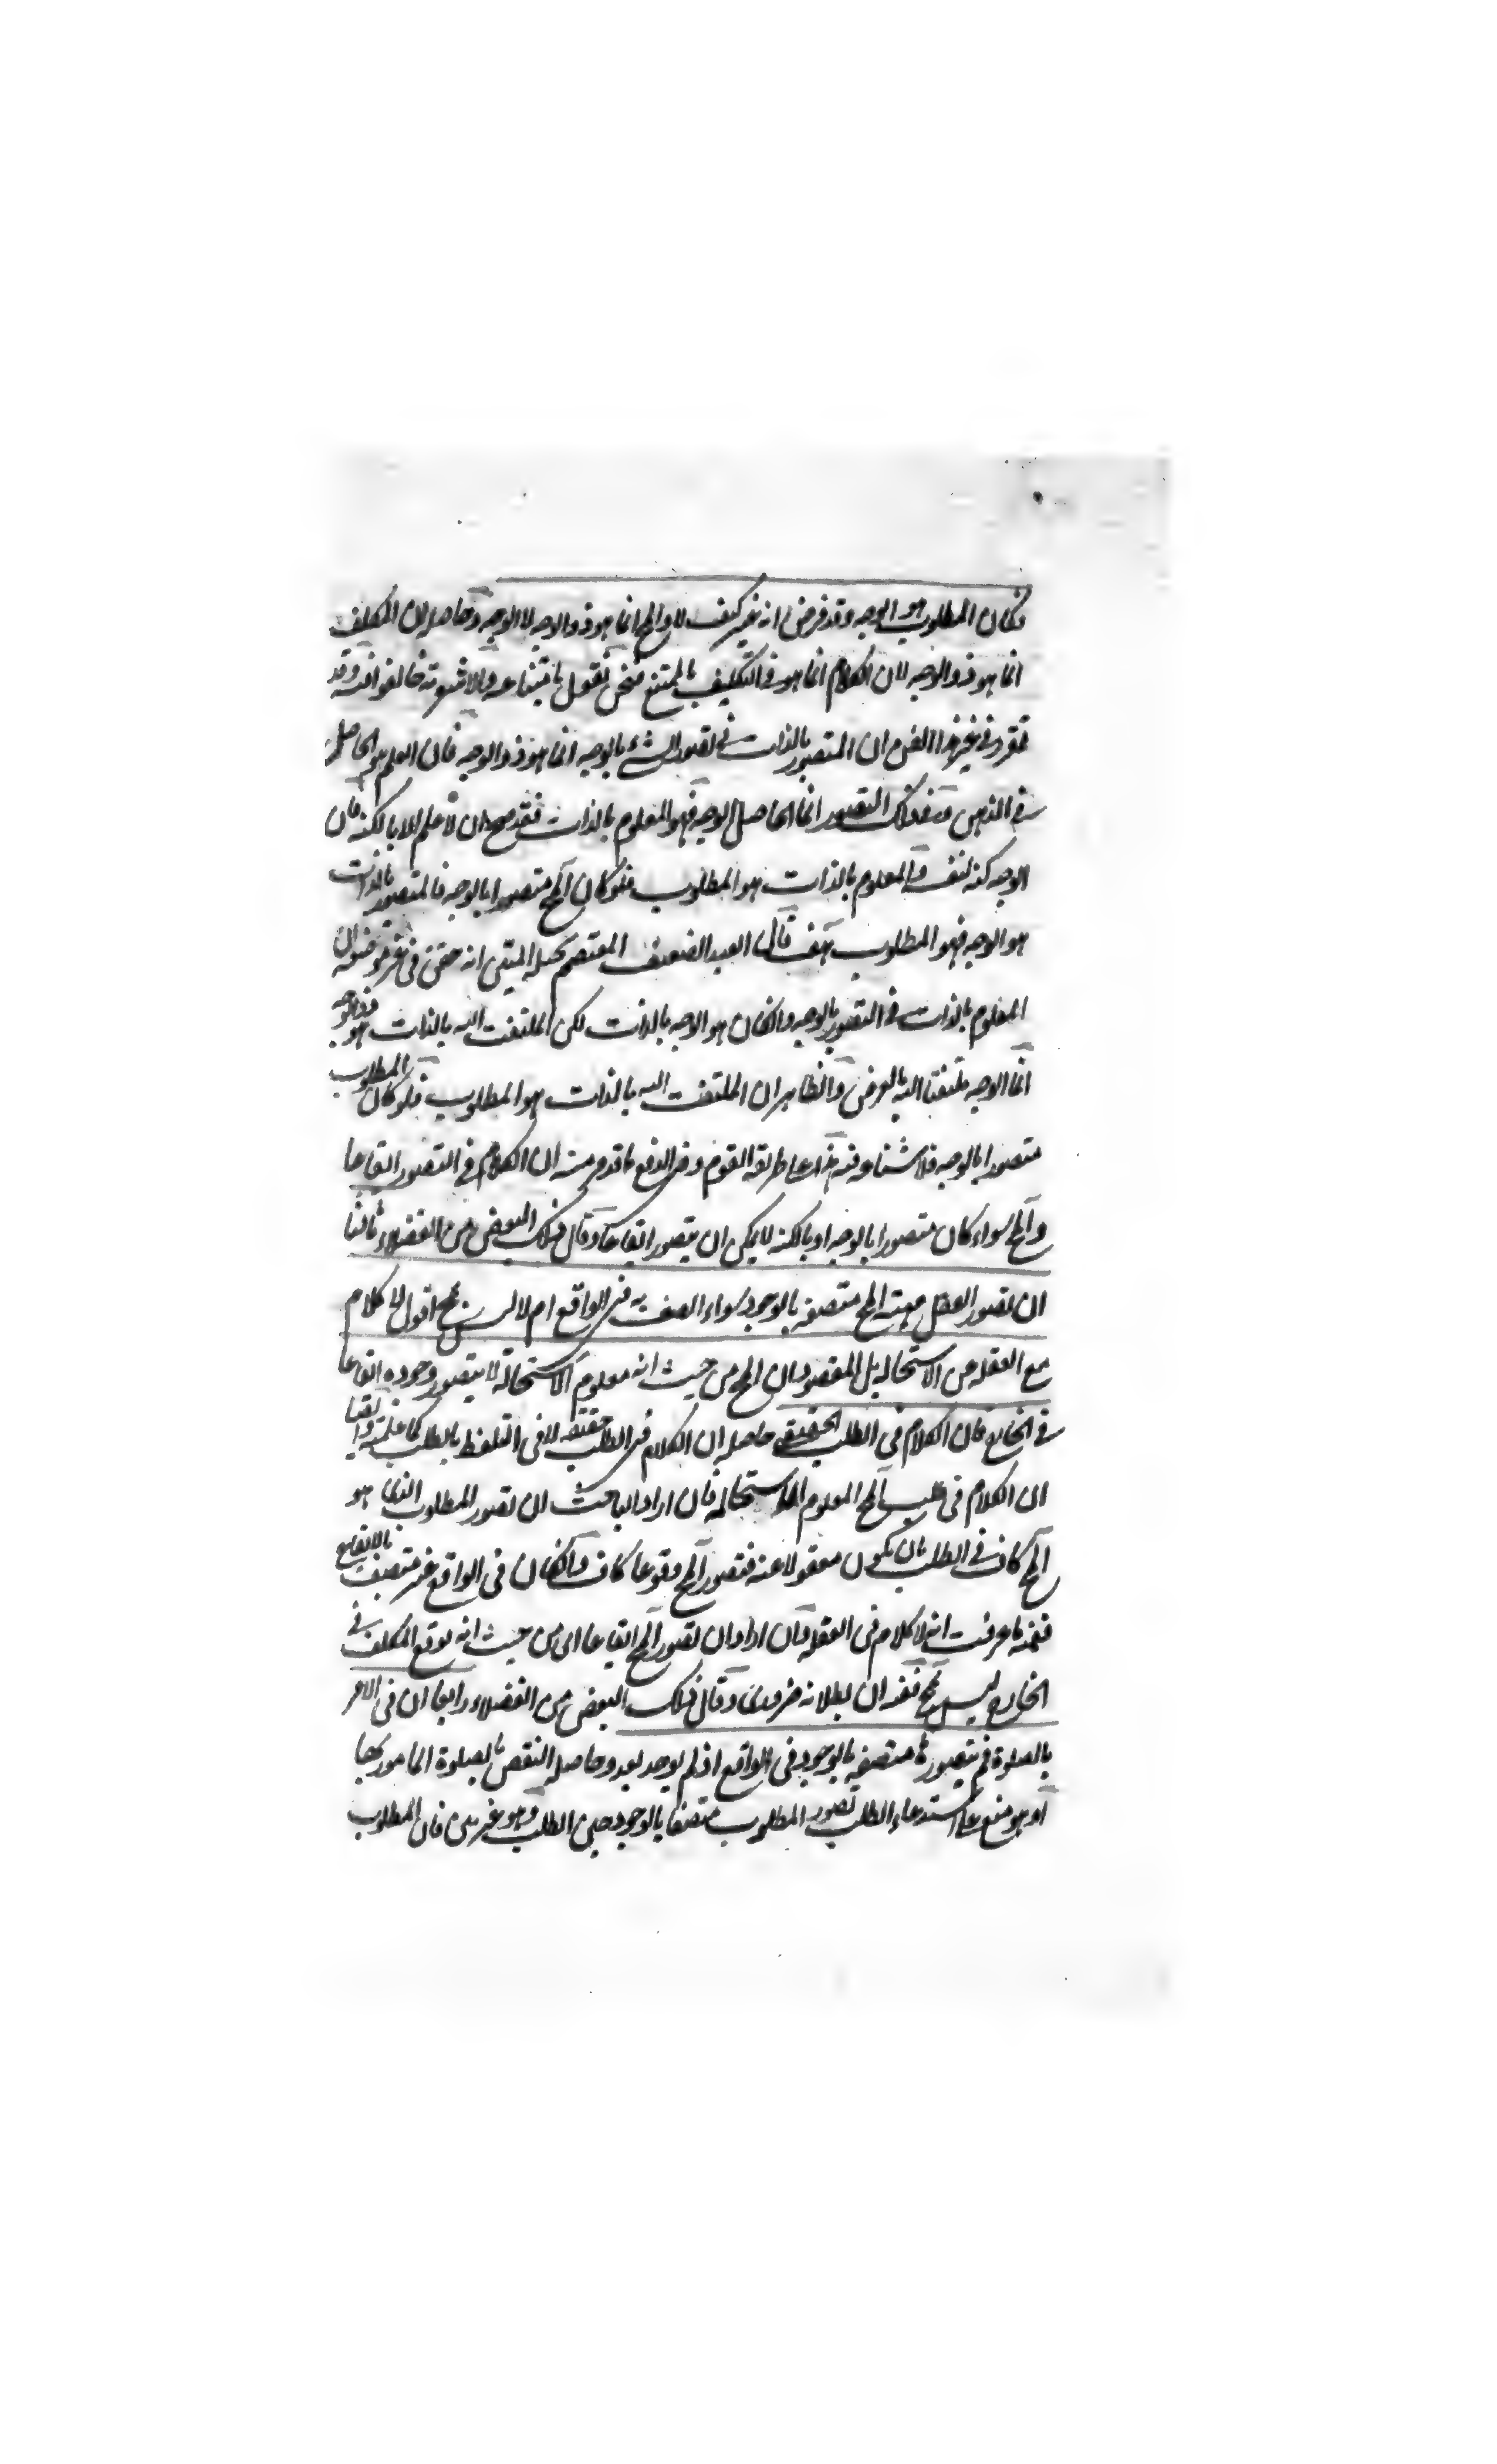 فكان المطلوب هو الوجه وقد فرض انه غير كيف لا والمح انما هو ذو الوجه لا الوجه وحاصله ان المكلف
انما هو ذو الوجه لان الكلام انما هو في التكليف بالممتنع فنحن نقول بامتناعه والاشعرية خالفوا فيه وقد
تقرر في غير هذا الفن ان المتصور بالذات في تصور الشيء بالوجه انما هو ذو الوجه فان العلم هو الحاصل
في الذهن وفي ذلك التصور انما الحاصل الوجه فهو المعلوم بالذات فقد صح ان لا علم الا بالكنه فان
الوجه كنه لنفسه والمعلوم بالذات هو المطلوب فلو كان المح متصورا بالوجه فالمتصور بالذات
هو الوجه فهو المطلوب هف قال العبد الضعيف المعتصم بحبله المتين انه حقق في غير موضعه ان
المعلوم بالذات في التصور بالوجه وانكان هو الوجه بالذات لكن الملتفت اليه بالذات هو ذو الوجه
انما الوجه ملتفتا اليه بالعرض والظاهر ان الملتفت اليه بالذات هو المطلوب فلو كان المطلوب
متصورا بالوجه فلا شناعة فيه هذا على طريقة القوم وفي الدفع ما قد مر منه ان الكلام في التصور ايقاعا
والمح سواء كان متصورا بالوجه او بالكنه لا يمكن ان يتصور ايقاعا وقال ذلك البعض من الفضلاء ثالثا
ان تصور العقل مهية المح متصفة بالوجود سواء اتصف به في الواقع ام لا ليس بمح اقول لا كلام
مع الغفلة عن الاستحالة بل المقصود ان المح من حيث انه معلوم الاستحالة لا يتصور وجوده ايقاعا
في الخارج فان الكلام في الطلب الحقيقي حاصله ان الكلام في الطلب حقيقة لا في التلفظ بالطلب كما علمت
ان الكلام في طلب المح المعلوم الاستحالة فان اراد الباحث ان تصور المطلوب الذي هو
المح كاف في الطلب بان يكون مغفولا عنه فتصور المح وقوعا كاف وانكان في الواقع غير متصف بالايقاع
ففيه ما عرفت انه لا كلام في الغفلة وان اراد ان تصور المح ايقاعا اي من حيث انه يوقع المكلف في
الخارج ليس بمح ففيه ان بطلانه ضروري وقال ذلك البعض من الفضلاء رابعا ان في الامر
بالصلوة لم يتصورها متصفة بالوجود في الواقع اذ لم يوجد بعد وحاصله النقض بالصلوة المامور بها
او هو منع على استدعاء الطلب تصور المطلوب متصفا بالوجود حين الطلب وهو غير بين فان المطلوب